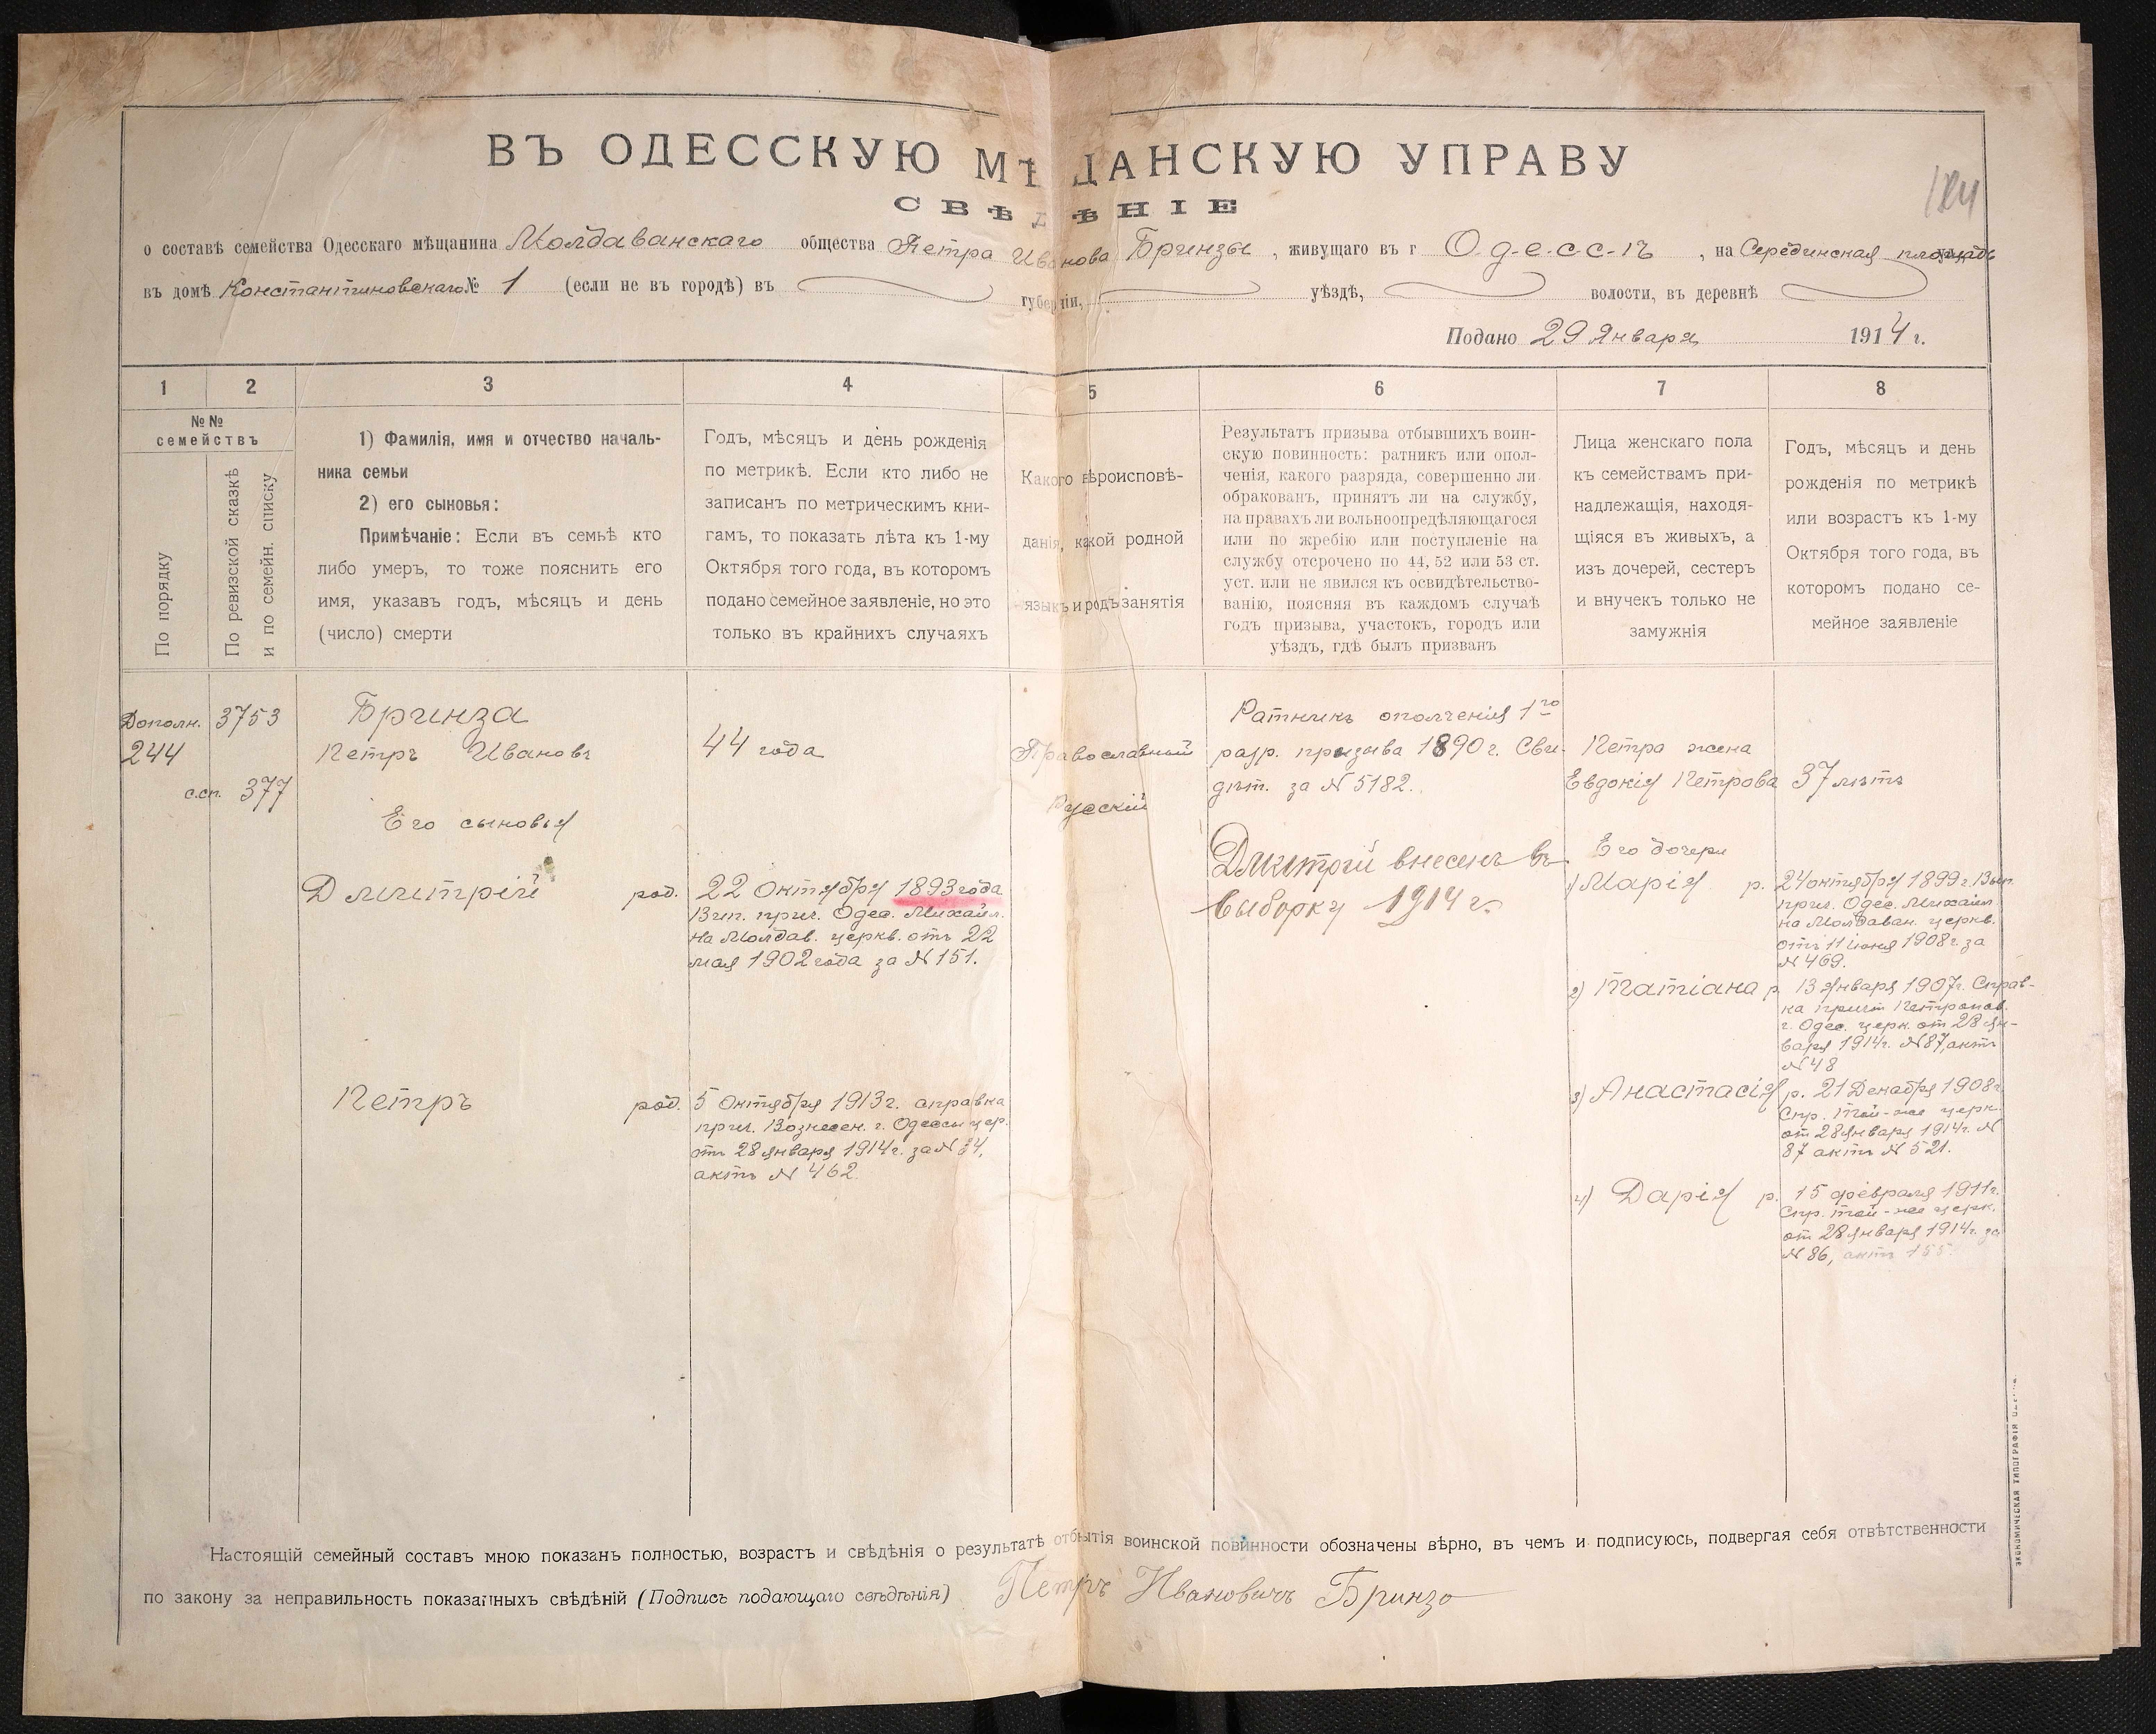 ВЪ ОДЕССКУЮ МѢЩАНСКУЮ УПРАВУ
СВѢДѢНІЕ
о составѣ семейства Одесскаго мѣщанина Молдаванскаго общества Петра Иванова Бринзы, живущаго въ г Одессѣ, на Серединская площадь
въ домѣ Константиновскаго № 1 (если не въ городѣ) въ губерніи, уѣздѣ, волости, въ деревнѣ
Подано 29 Января 1914 г.
1 2 3 4 5 6 7 8
№№
семействъ
По порядку
По ревизской сказкѣ
и по семейн. списку
1) Фамилія, имя и отчество началь-
ника семьи
2) его сыновья:
Примѣчаніе: Если въ семьѣ кто
либо умеръ, то тоже пояснить его
имя, указавъ годъ, мѣсяцъ и день
(число) смерти
Годъ, мѣсяцъ и день рожденія
по метрикѣ. Если кто либо не
записанъ по метрическимъ кни-
гамъ, то показать лѣта къ 1-му
Октября того года, въ которомъ
подано семейное заявленіе, но это
только въ крайнихъ случаяхъ
Какого вѣроисповѣ-
данія, какой родной
языкъ и родъ занятія
Результатъ призыва отбывшихъ воин-
скую повинность: ратникъ или опол-
ченія, какого разряда, совершенно ли
обракованъ, принятъ ли на службу,
на правахъ ли вольноопредѣляющагося
или по жребію или поступленіе на
службу отсрочено по 44, 52 или 53 ст.
уст. или не явился къ освидѣтельство-
ванію, поясняя въ каждомъ случаѣ
годъ призыва, участокъ, городъ или
уѣздъ, гдѣ былъ призванъ
Лица женскаго пола
къ семействамъ при-
надлежащія, находя-
щіяся въ живыхъ, а
изъ дочерей, сестеръ
и внучекъ только не
замужнія
Годъ, мѣсяцъ и день
рожденія по метрикѣ
или возрастъ къ 1-му
Октября того года, въ
которомъ подано се-
мейное заявленіе
Дополн.
244
3753
с.сп. 377
Бринза
Петръ Ивановъ
Его сыновья
Дмитрій род.
Петръ род.
44 года
22 Октября 1893 года
Вып. прич. Одес. Михайл.
на Молдав. церкв. отъ 22
мая 1902 года за N 151.
5 Октября 1913 г. справка
прич. Вознесен. г. Одессы цер.
отъ 28 января 1914 г. за N 34,
актъ N 462.
Православный
Русскій
Ратникъ ополченія 1го
разр. призыва 1890 г. Сви-
дѣт. за N 5182.
Дмитрій внесенъ въ
выборку 1914 г.
Петра жена
Евдокія Петрова
Его дочери
1) Марія р.
2) Татіана р.
3) Анастасія
4) Дарія р.
37 лѣтъ
24 октября 1899 г. Вып.
прич. Одес. Михайл
на Молдаван. церкв.
отъ 11 іюня 1908 г. за
N 469.
13 Января 1907 г. Справ-
ка причт Петропав.
г. Одес. церк. от 28 Ян-
варя 1914 г. N 87, актъ
N 48
р. 21 Декабря 1908 г.
Спр. той-же церк.
от 28 Января 1914 г. N
87 актъ N 521.
15 февраля 1911 г.
Спр. той-же церк.
от 28 января 1914 г. за
N 86, актъ 155
Настоящій семейный составъ мною показанъ полностью, возрастъ и свѣдѣнія о результатѣ отбытія воинской повинности обозначены вѣрно, въ чемъ и подписуюсь, подвергая себя отвѣтственности
по закону за неправильность показанныхъ свѣдѣній (Подпись подающаго свѣдѣнія) Петръ Ивановичъ Бринзо
ЭКОНОМИЧЕСКАЯ ТИПОГРАФІЯ